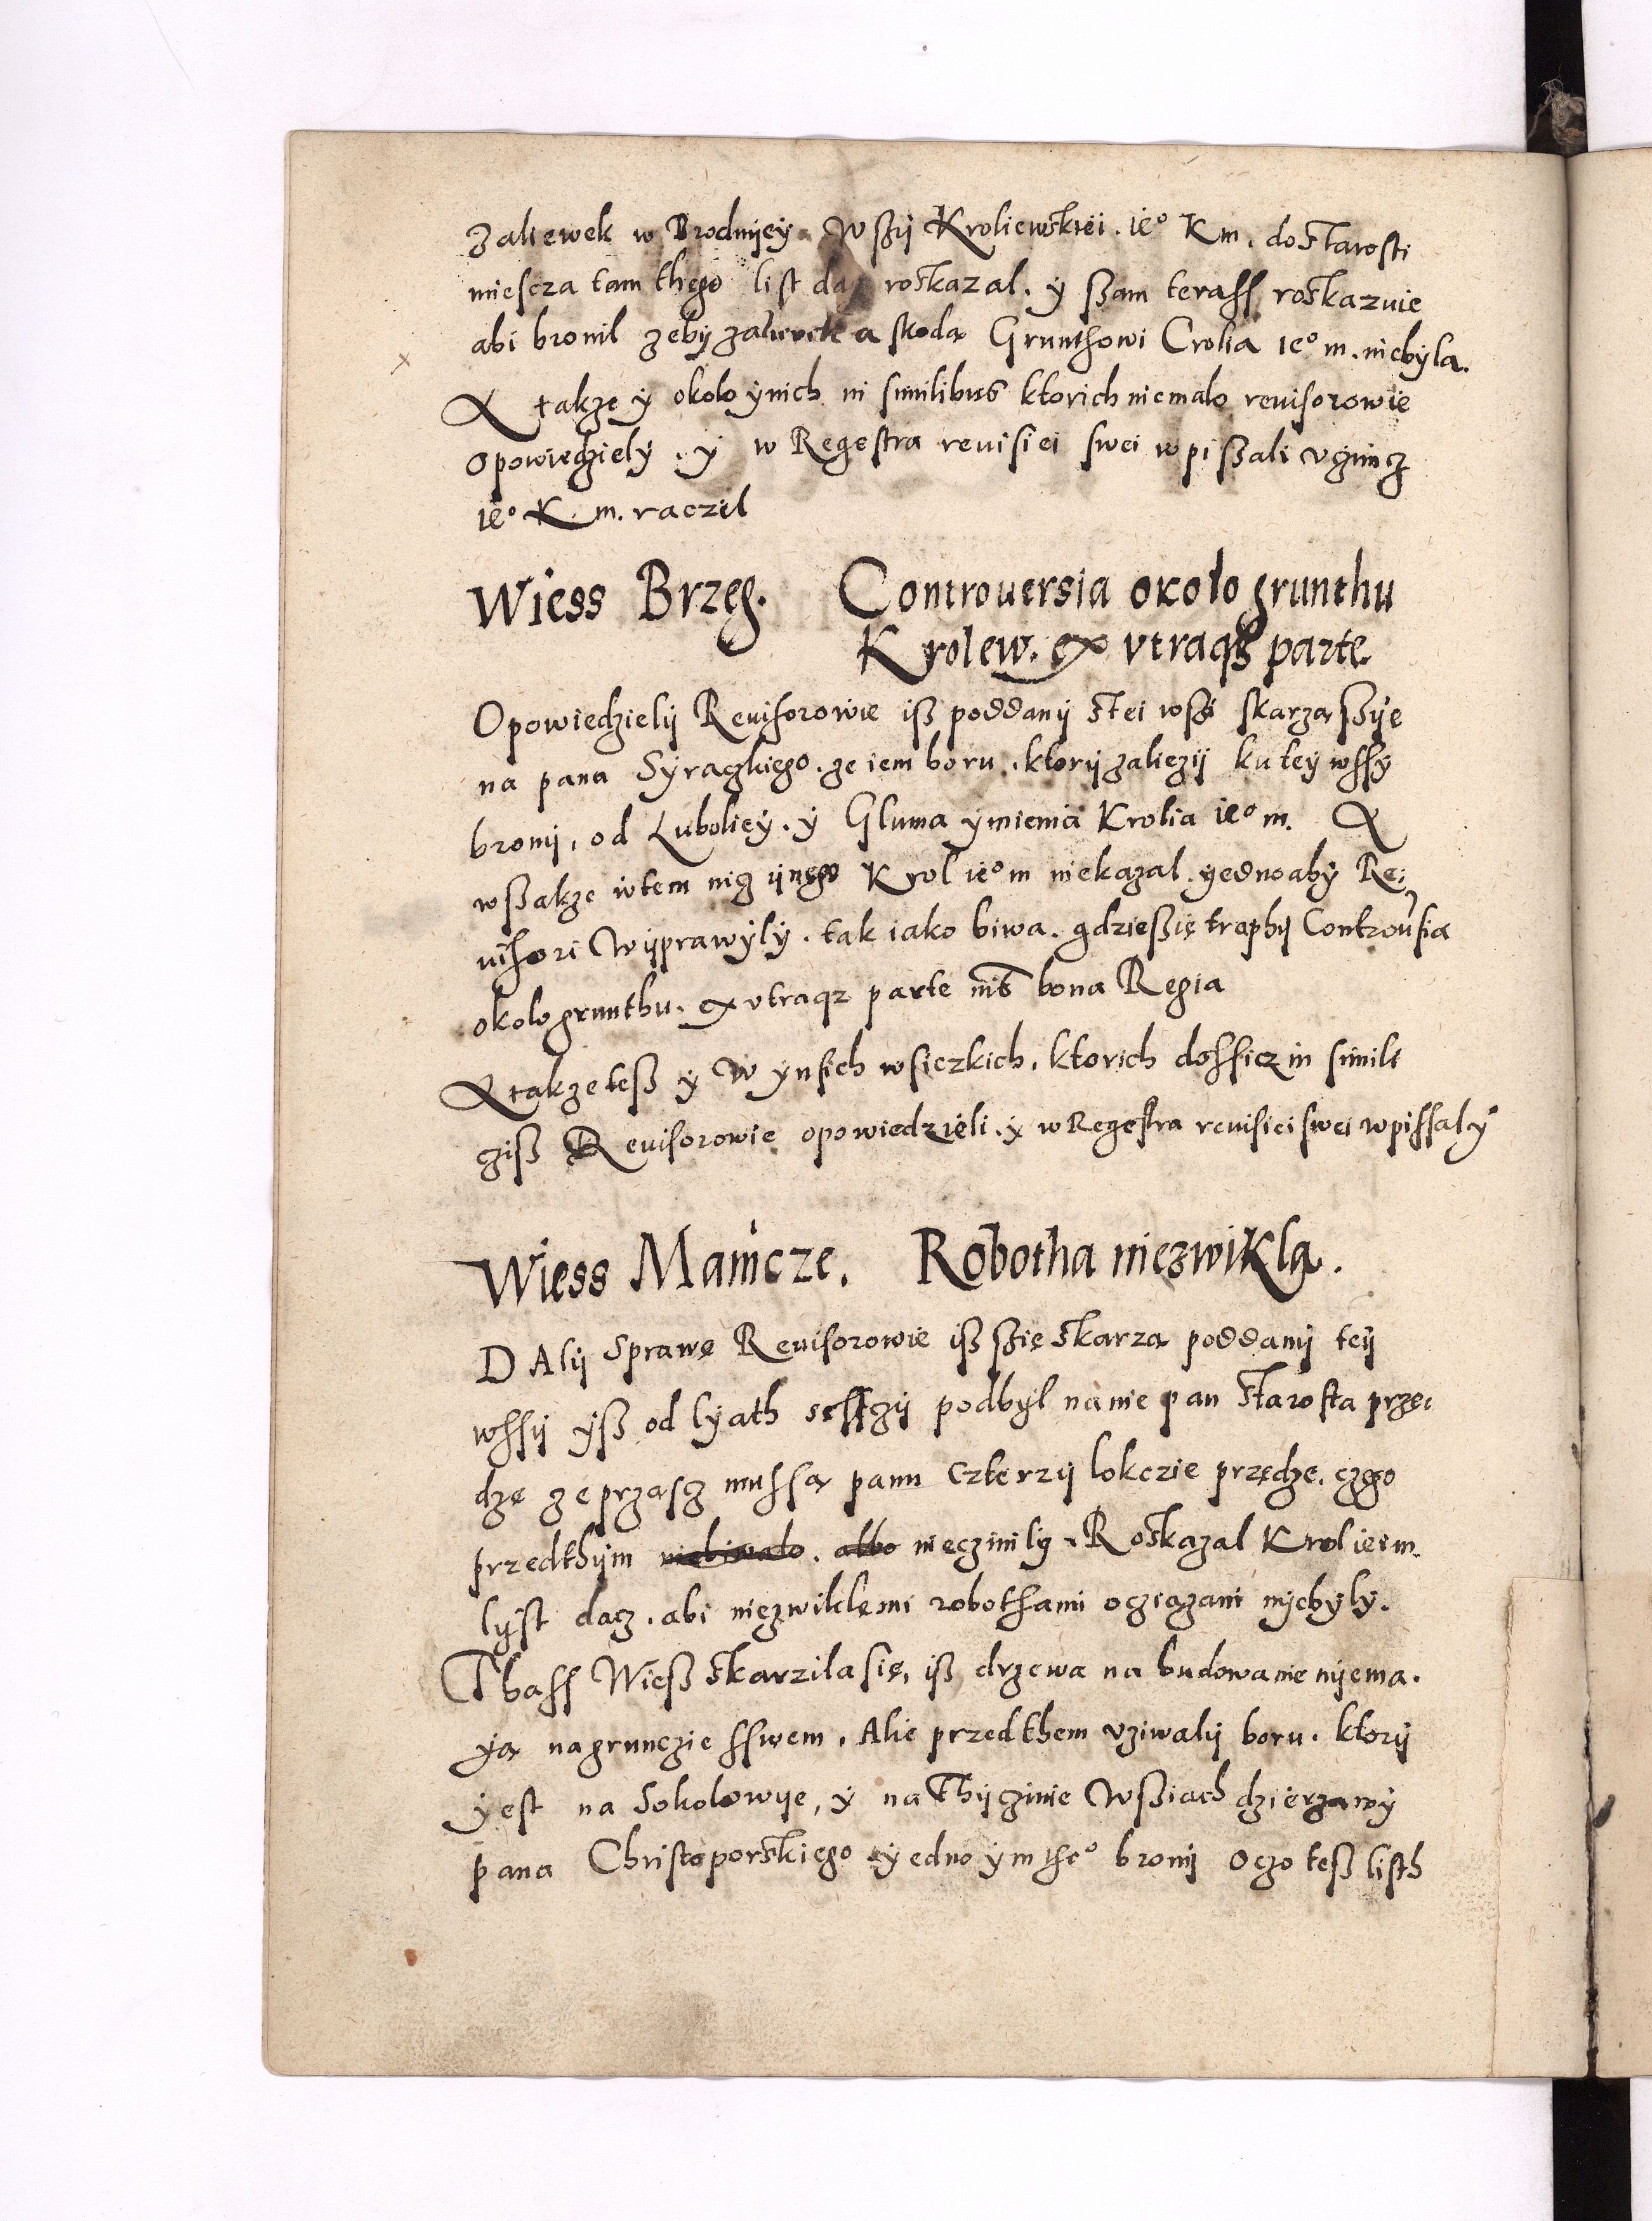 zaliewek w Brodnijcy Wszij Kroliewskiei. ieº K m. do Starosti
miescza tam thego list dacz roskazal. y szam terass roskazuie
abi bronil zebÿ zaliewek a skoda Grunthowi Crolia ieº m. niebÿla.
A takze ÿ okolo ÿnich in similibus ktorich niemalo reuisorowie
opowiedzielÿ. ÿ w Regestra reuisiei swei wpiszali vczinicz
ieº K. m. raczil
Wiess Brzeg. Controuersia około grunthu
Krolew. ex vtraqz parte
Opowiedzielij Reuisorowie isz poddanij stei wszi skarzą szije
na pana Syraczkiego. ze iem boru. ktorij zaliezij ku teÿ wssÿ
bronij, od Luboliey. ÿ Gluma ÿmienia Krolia ieº m. A
wszakze wtem nicz ijnego Krol ieº m niekazal. yedno abÿ Re:
uisori Wijprawÿlÿ. tak iako biwa. gdzie szię traphij Controuersia
okolo grunthu. ex vtraqz parte inter bona Regia
A takze tesz ÿ W ÿnsich wsiczkich, ktorich dossicz in simili
czisz Reuisorowie opowiedzieli. ÿ w Regestra reuisiei swei wpissalÿ
Wiess Mamcze. Robotha niezwikla.
DAlij sprawę Reuisorowie isz szię skarzą poddanij teij
wssij ÿsz od lÿath sessczij podbÿl na nie pan starosta przę:
dzę ze prząscz mussą panu czterzij lokczie przędze. czego
przedthÿm niebiwalo. albo nieczinilÿ. Roskazal Krol ieº m.
lÿst dacz. abi niezwiklemi robothami oczięzani niebÿlÿ.
Thass Wiesz skarzila się, isz drzewa na budowanie nijema.
ÿą na grunczie sswem. Alie przedthem vziwalij boru. ktorij
ÿest na Sokolowije, ÿ na Thijczinie Wsziach dzierzawÿ
pana Christoporskiego ÿedno ÿm theº bronij Oczo tesz listh